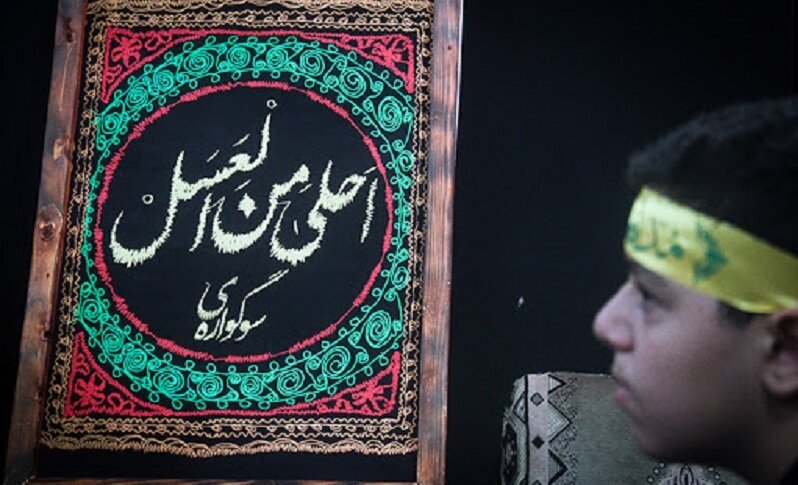 اَحلی مِن العَسَل
سوگواره ی